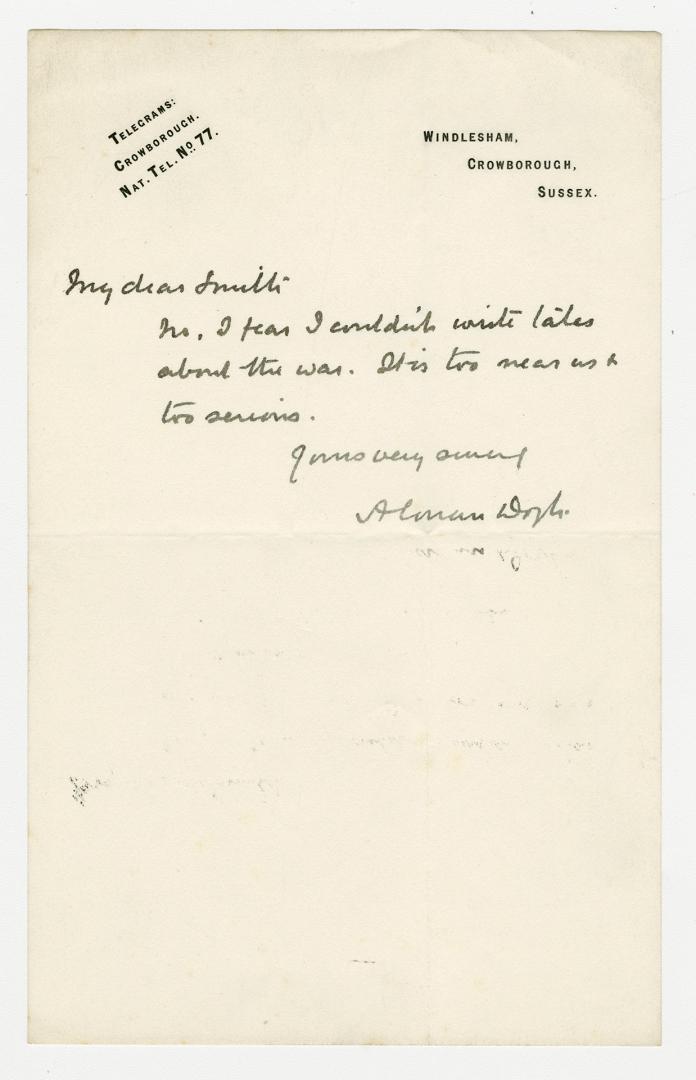 TELEGRAMS:
CROWBOROUGH.
NAT. TEL. No. 77.
WINDLESHAM,
CROWBOROUGH,
SUSSEX.
My dear Smith
No, I fear I couldn't write tales
about the war. It is too near us &
too serious.
Yours very sincerely
A Conan Doyle.